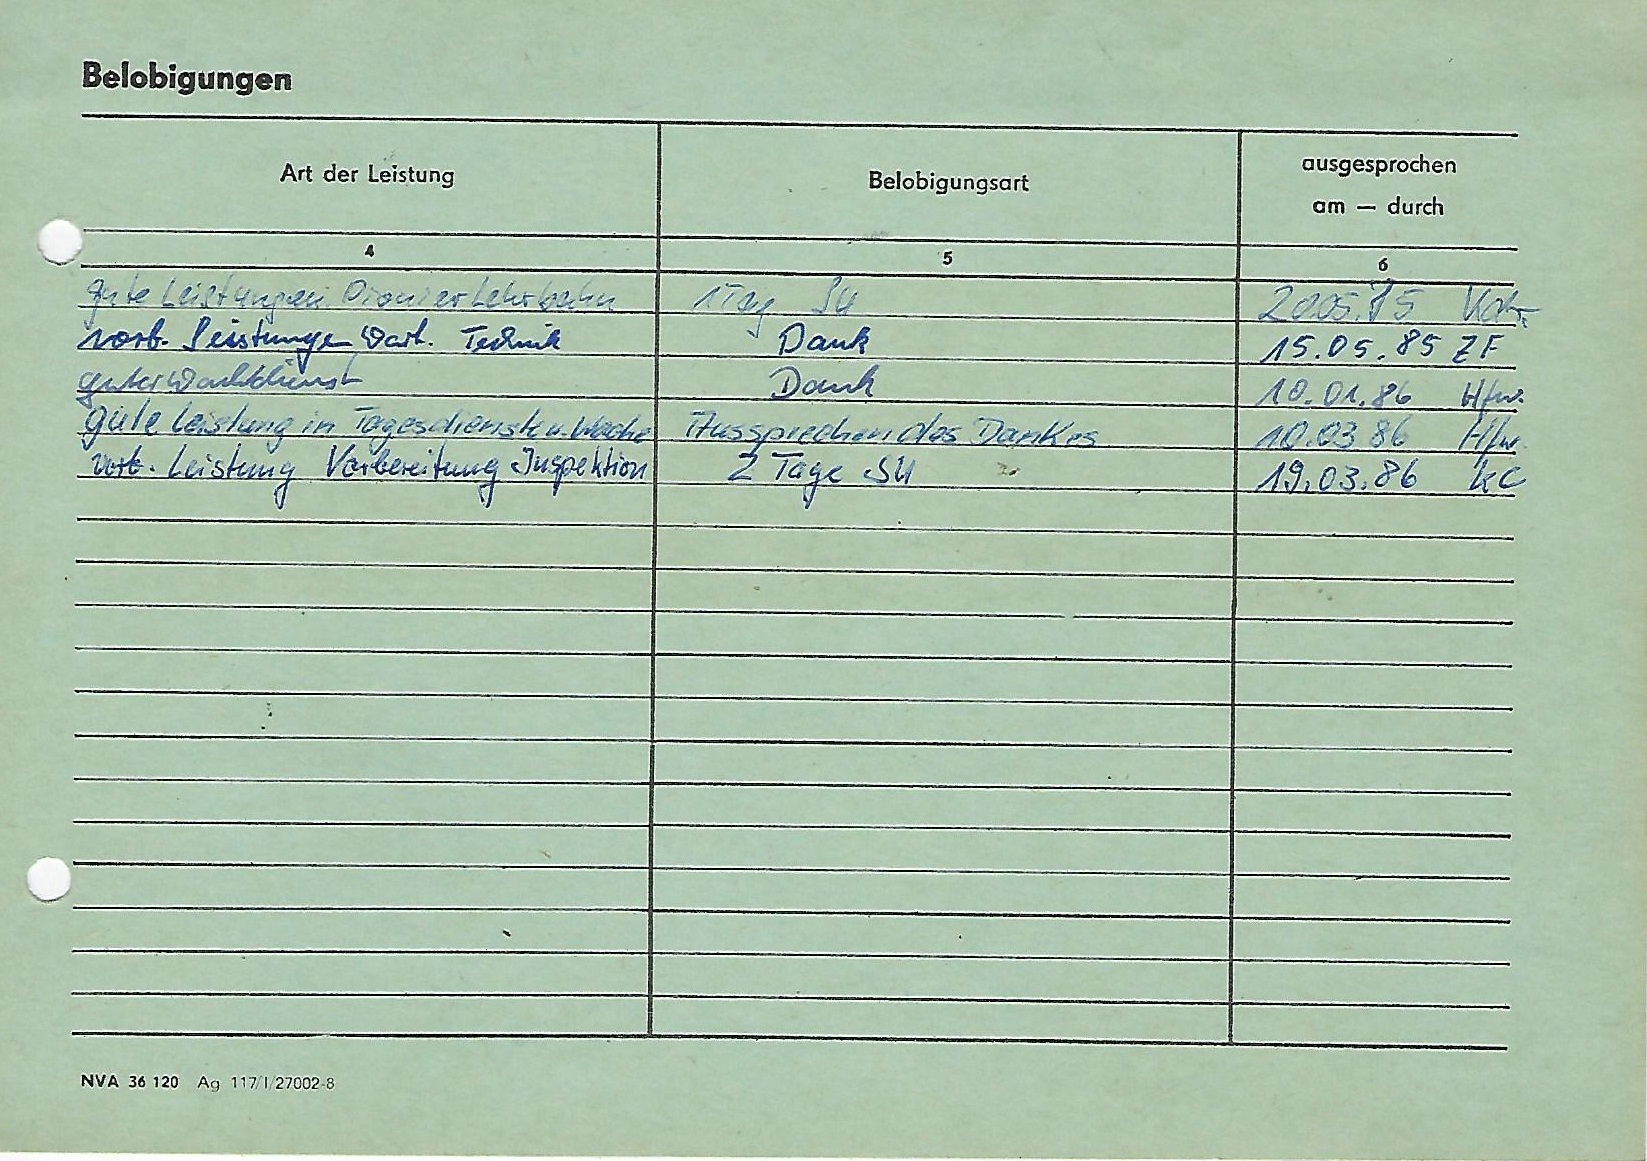 Belobigungen
Art der Leistung Belobigungsart ausgesprochen
am — durch
4 5 6
gute Leistungen Pionierlehrbahn 1 Tag SU 20.05.85
vorb. Leistungen Wart. Technik Dank 15.05.85 ZF
guter Wachdienst Dank 10.01.86 Hfw.
gute Leistung in Tagesdienst u. Wache Aussprechen des Dankes 10.03.86 Hfw.
vorb. Leistung Vorbereitung Inspektion 2 Tage SU 19.03.86 KC
NVA 36 120 Ag 117/I/27002-8